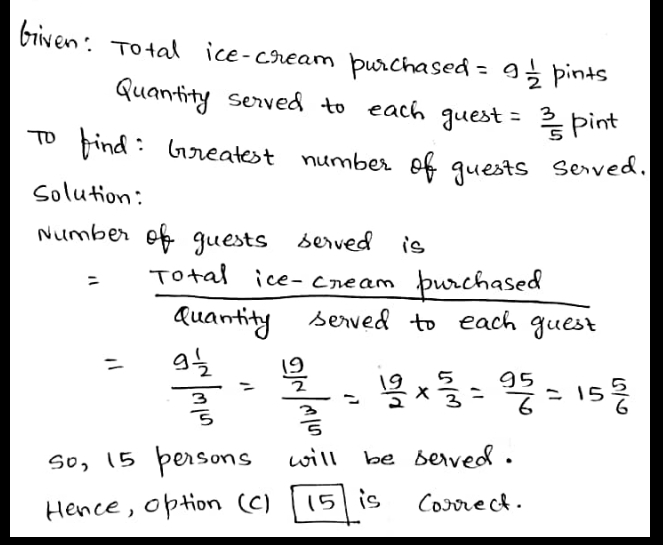 Given: Total ice-cream purchased = 9 1/2 pints
Quantity served to each guest = 3/5 pint
To find: Greatest number of guests served.
Solution:
Number of guests served is
= Total ice-cream purchased / Quantity served to each guest
= (9 1/2)/(3/5) = (19/2)/(3/5) = 19/2 × 5/3 = 95/6 = 15 5/6
So, 15 persons will be served.
Hence, option (C) 15 is correct.